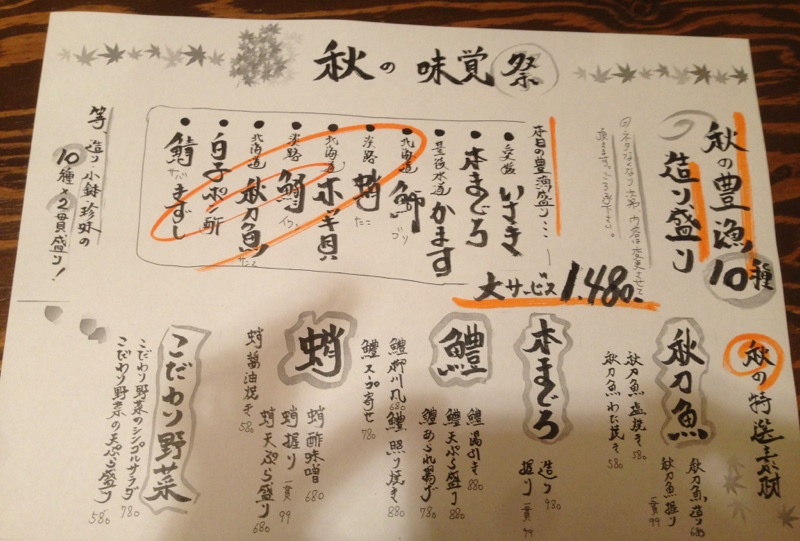 秋の味覚祭
秋の豊漁10種
造り盛り
大サービス 1.480-
本日の豊漁盛り…
いさき
本まぐろ
豊後水道 かます
北海道 鰤 ブリ
淡路 蛸 たこ
北海道 ホッキ貝
淡路 鰯 イワシ
北海道 秋刀魚 サンマ
白子ポン酢
鯖きずし
等、造り小鉢珍味の
10種×2貫盛り!
秋の特選素材
秋刀魚
秋刀魚造り
秋刀魚握り 一貫99
秋刀魚塩焼き 580
秋刀魚わた焼き 580
本まぐろ
造り 980
握り 一貫99
鱧
鱧湯引き 880
鱧天ぷら盛り 880
鱧あられ揚げ 780
鱧照り焼き 880
鱧柳川風 680
鱧スープ寄せ 780
蛸
蛸酢味噌 680
蛸握り 一貫99
蛸天ぷら盛り 680
蛸醤油焼き 580
こだわり野菜
こだわり野菜のシンプルサラダ 780
こだわり野菜の天ぷら盛り 580